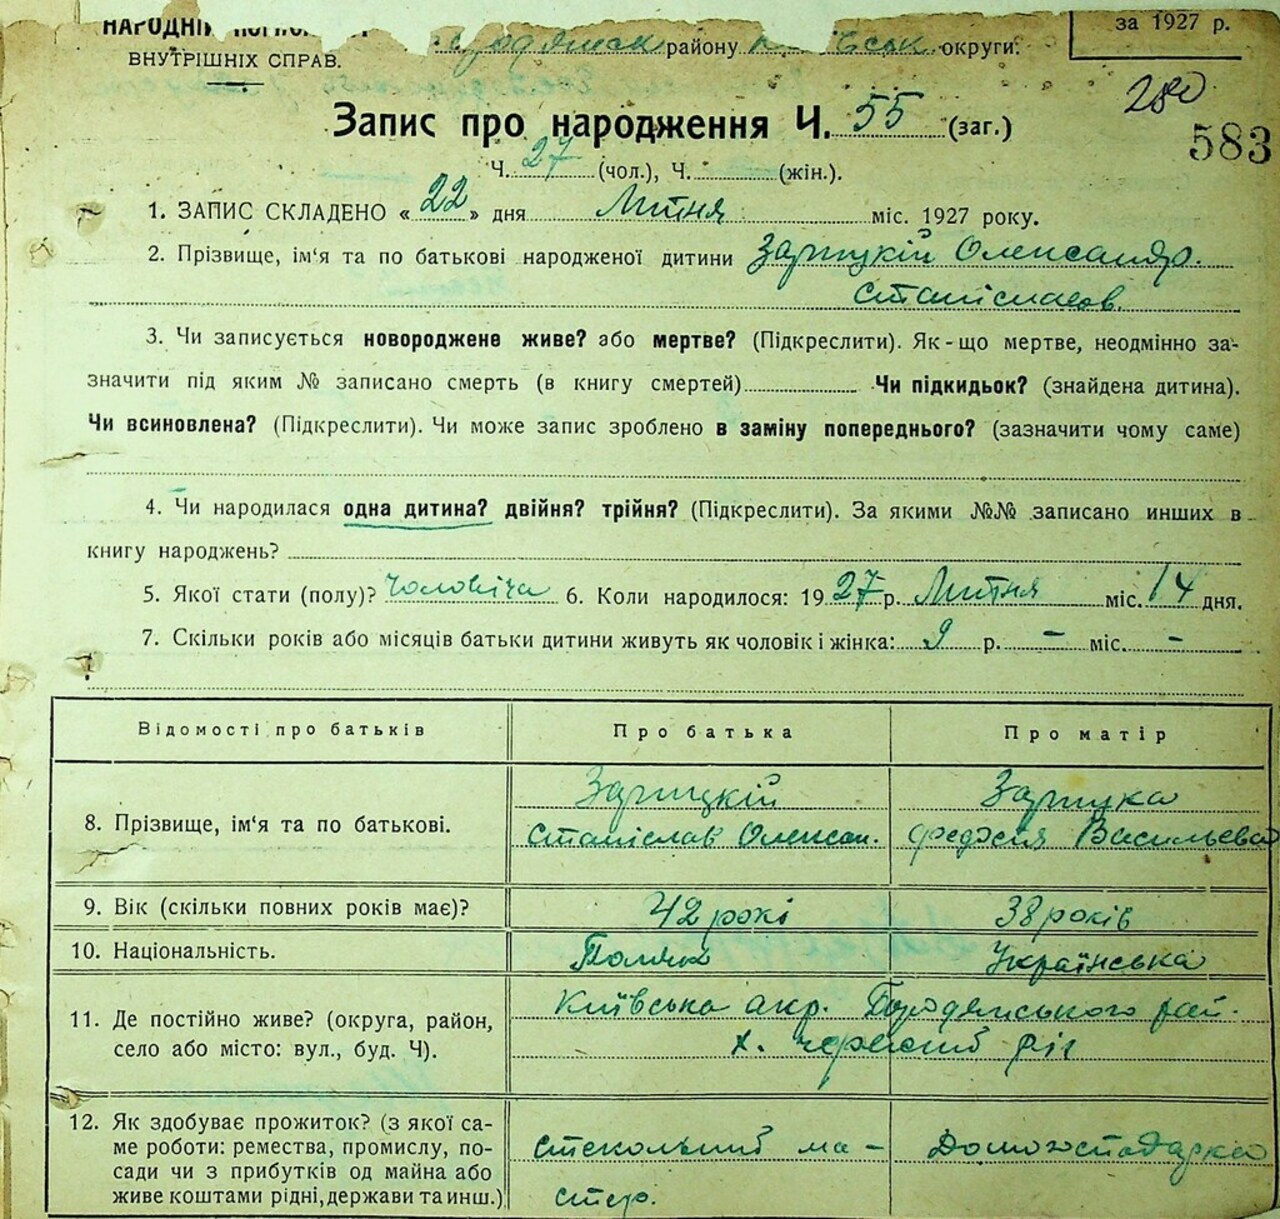 НАРОДНІЙ
району округи:
за 1927 р.
ВНУТРІШНІХ СПРАВ.
280
Запис про народження Ч. 55 (заг.)
583
Ч. 27 (чол.), Ч. (жін.).
1. ЗАПИС СКЛАДЕНО « 22 » дня Лютня міс. 1927 року.
2. Прізвище, ім'я та по батькові народженої дитини Зарицкій Олександр.
Станіславов.
3. Чи записується новороджене живе? або мертве? (Підкреслити). Як-що мертве, неодмінно за-
значити під яким № записано смерть (в книгу смертей) Чи підкидьок? (знайдена дитина).
Чи всиновлена? (Підкреслити). Чи може запис зроблено в заміну попереднього? (зазначити чому саме)
4. Чи народилася одна дитина? двійня? трійня? (Підкреслити). За якими №№ записано инших в
книгу народжень?
5. Якої стати (полу)? Чоловіча 6. Коли народилося: 1927 р. Лютня міс. 14 дня.
7. Скільки років або місяців батьки дитини живуть як чоловік і жінка: 9 р. – міс. –
Відомості про батьків Про батька Про матір
Зарицкій Зарицка
8. Прізвище, ім'я та по батькові. Станіслав Олексан. Васильева
9. Вік (скільки повних років має)? 42 рокі 38 років
10. Національність. Поляк Українська
11. Де постійно живе? (округа, район, Київська окр. Бородянського рай.
село або місто: вул., буд. Ч). х. ріг
12. Як здобуває прожиток? (з якої са-
ме роботи: ремества, промислу, по- стекольний ма- Домогосподарка
сади чи з прибутків од майна або
живе коштами рідні, держави та инш.) стер.